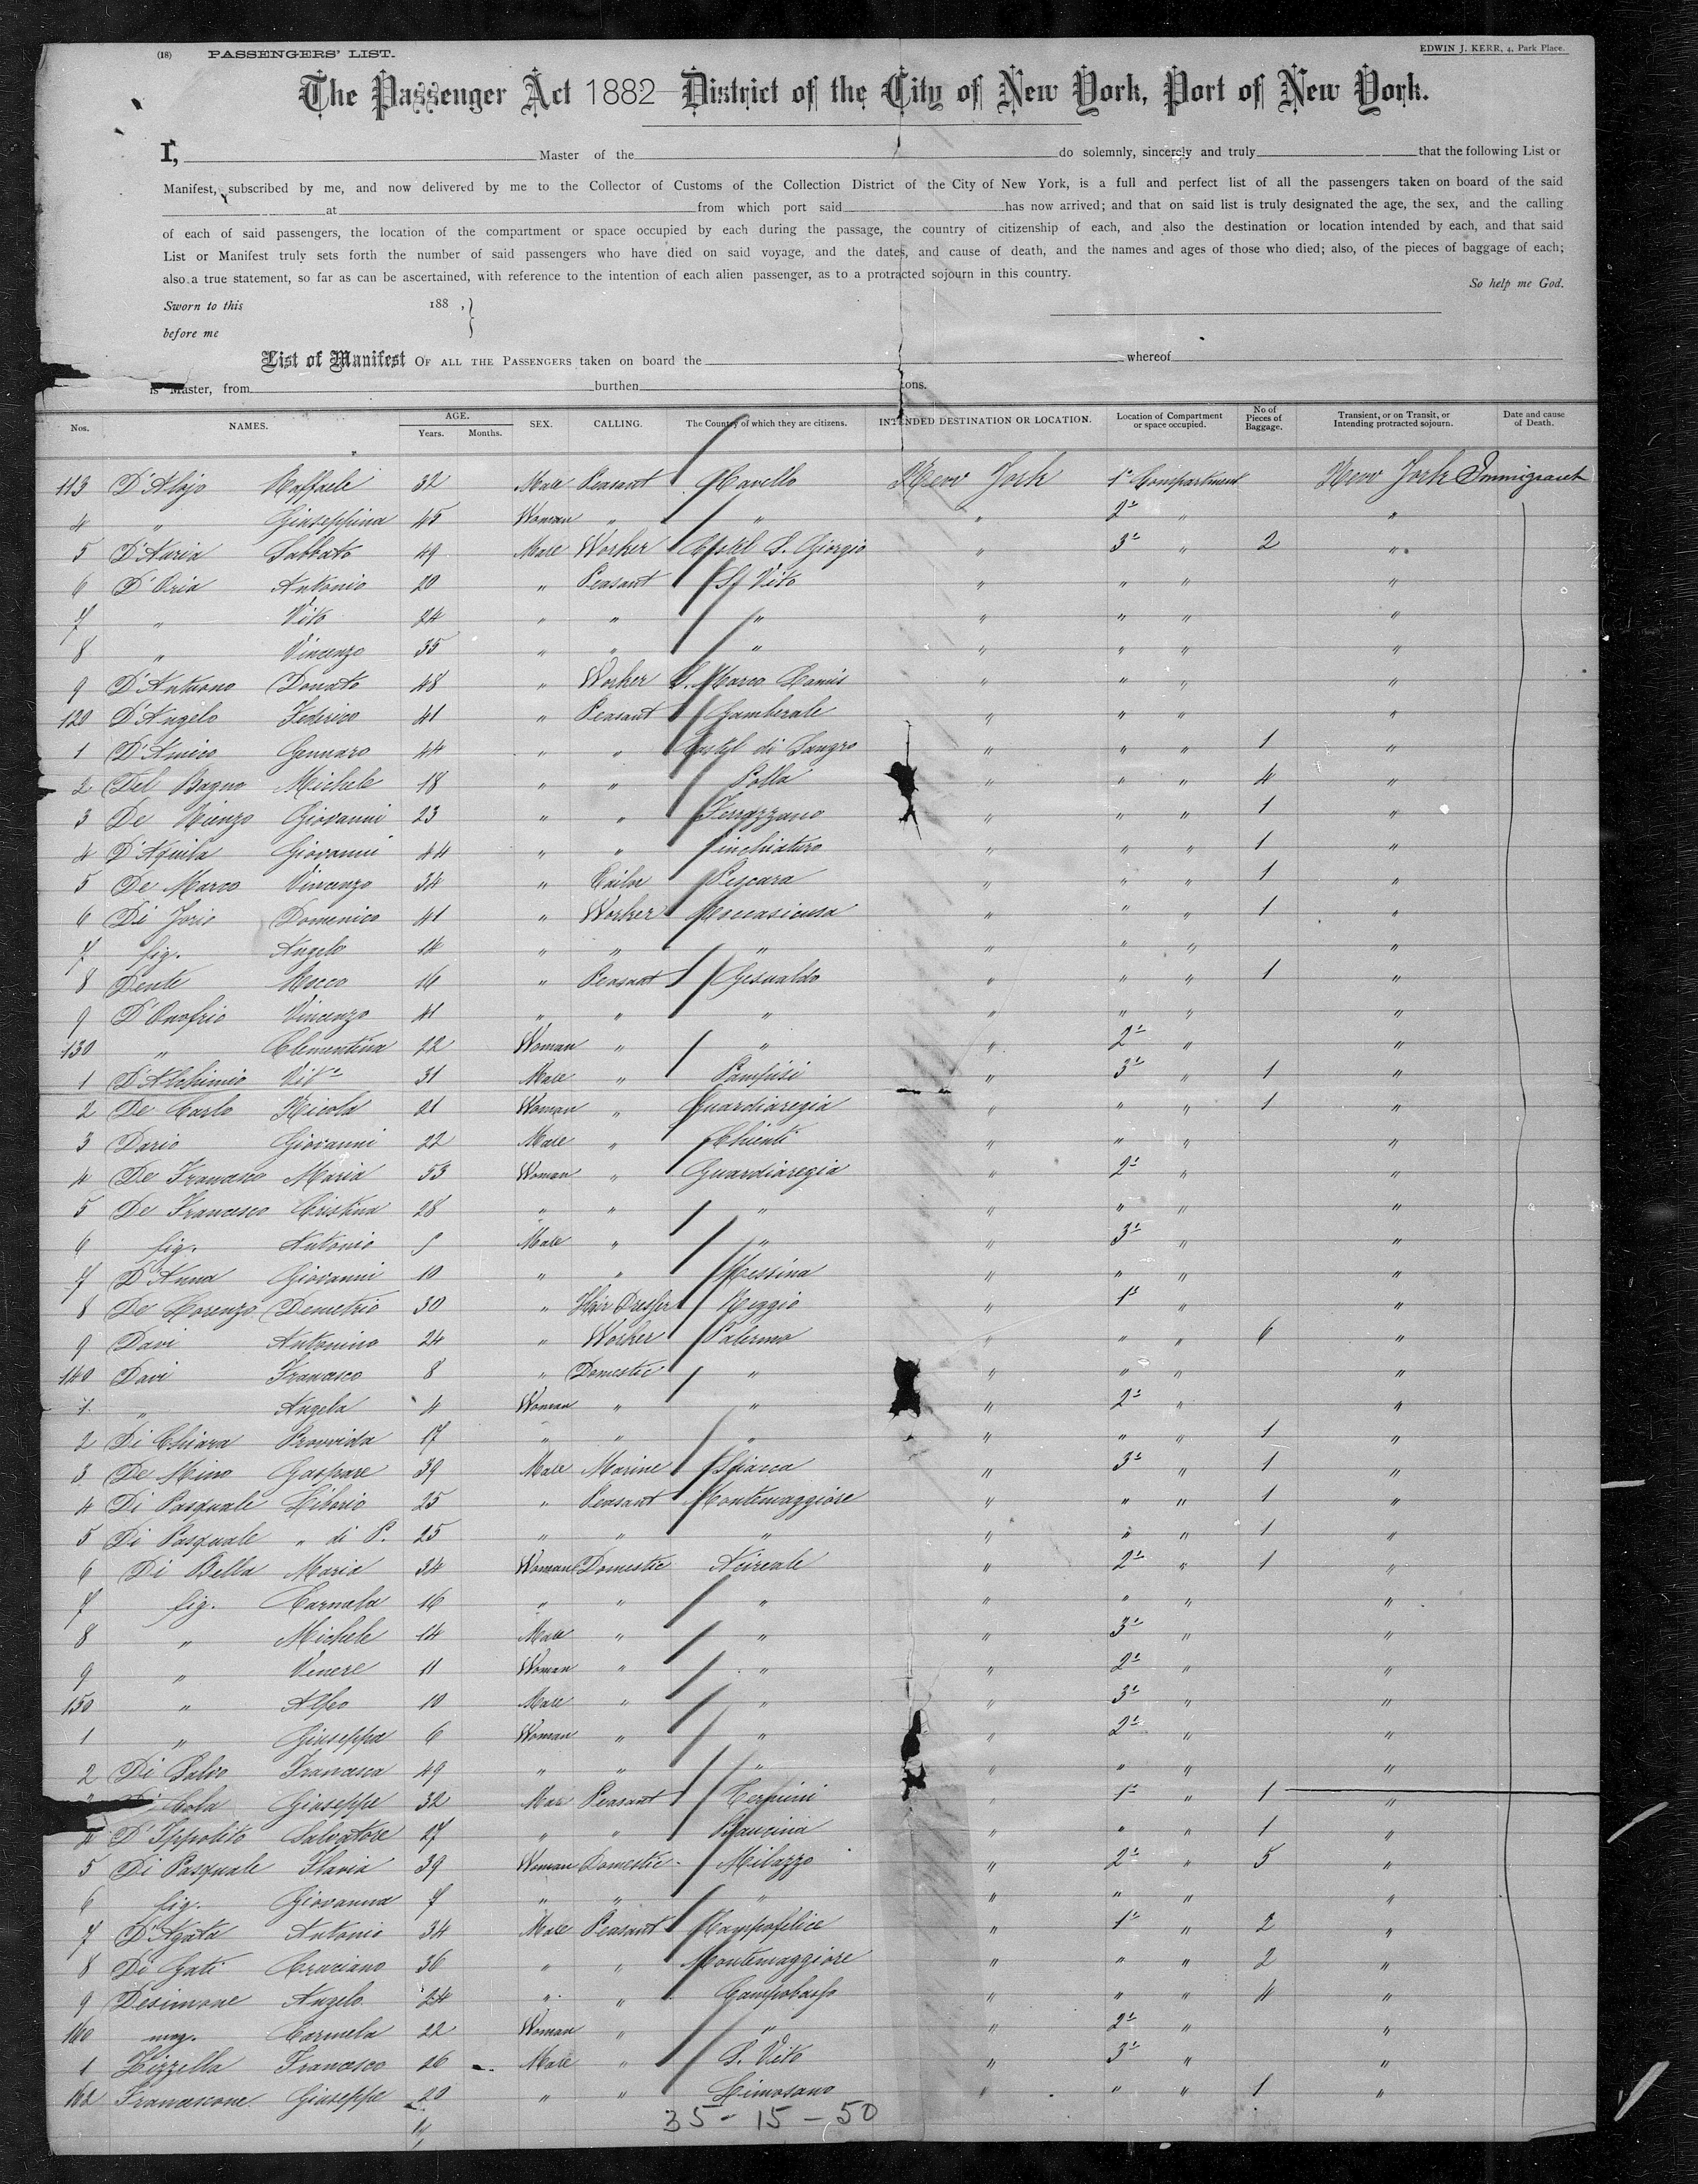 (18) PASSENGERS' LIST. EDWIN J. KERR, 4, Park Place.
The Passenger Act 1882 District of the City of New York, Port of New York.
I, Master of the do solemnly, sincerely and truly that the following List or
Manifest, subscribed by me, and now delivered by me to the Collector of Customs of the Collection District of the City of New York, is a full and perfect list of all the passengers taken on board of the said
at from which port said has now arrived; and that on said list is truly designated the age, the sex, and the calling
of each of said passengers, the location of the compartment or space occupied by each during the passage, the country of citizenship of each, and also the destination or location intended by each, and that said
List or Manifest truly sets forth the number of said passengers who have died on said voyage, and the dates, and cause of death, and the names and ages of those who died; also, of the pieces of baggage of each;
also a true statement, so far as can be ascertained, with reference to the intention of each alien passenger, as to a protracted sojourn in this country.
So help me God.
Sworn to this 188 , }
before me
List of Manifest OF ALL THE PASSENGERS taken on board the whereof
is Master, from burthen tons.
Nos. NAMES. AGE. Years. Months. SEX. CALLING. The Country of which they are citizens. INTENDED DESTINATION OR LOCATION. Location of Compartment or space occupied. No of Pieces of Baggage. Transient, or on Transit, or Intending protracted sojourn. Date and cause of Death.
113 Raffaele 32 Male Peasant Ravello New York 1a Compartment New York Immigrant
4 " Giuseppina 45 Woman " " " 2a " "
5 D'Auria Sabbato 49 Male Worker Castel S. Giorgio " 3a " 2 "
6 D'Oria Antonio 20 " Peasant S. Vito " " " "
7 " Vito 24 " " " " " " "
8 " Vincenzo 35 " " " " " " "
9 D'Antuono Donato 48 " Worker S. Marco Lamis " " " "
120 D'Angelo Federico 41 " Peasant Gamberale " " " "
1 D'Amico Gennaro 44 " " Castel di Sangro " " " 1 "
2 Del Bagno Michele 18 " " Polla " " " 4 "
3 De Rienzo Giovanni 23 " " Ferrazzano " " " 1 "
4 D'Aquila Giovanni 44 " " Vinchiaturo " " " 1 "
5 De Marco Vincenzo 34 " Tailor Pescara " " " 1 "
6 Di Jorio Domenico 41 " Worker Roccasicura " " " 1 "
7 fig. Angelo 14 " " " " " " "
8 Dente Rocco 16 " Peasant Gesualdo " " " 1 "
9 D'Onofrio Vincenzo 41 " " " " " " "
130 " Clementina 22 Woman " " " 2a " "
1 Vito 31 Male " " 3a " 1 "
2 De Carlo Nicola 21 Woman " Guardiaregia " " " 1 "
3 Dario Giovanni 22 Male " Chienti " " " "
4 De Francesco Maria 53 Woman " Guardiaregia " 2a " "
5 De Francesco Cristina 28 " " " " " " "
6 fig. Antonio Male " " " 3a " "
7 D'Anna Giovanni 10 " " Messina " " " "
8 De Lorenzo Demetrio 30 " Hair Dresser Reggio " 1a " "
9 Davi Antonino 24 " Worker Palermo " " " 6 "
140 Davi Francesco 8 " Domestic " " " " "
1 " Angela 4 Woman " " " 2a " "
2 Di Chiara Provvida 17 " " " " " " 1 "
3 De Mino Gaspare 39 Male Marine Sciacca " 3a " 1 "
4 Di Pasquale Liborio 25 " Peasant Montemaggiore " " " 1 "
5 Di Pasquale " di P. 25 " " " " " " 1 "
6 Di Bella Maria 34 Woman Domestic Acireale " 2a " 1 "
7 fig. Carmela 16 " " " " " " "
8 " Michele 14 Male " " " 3a " "
9 " Venere 11 Woman " " " 2a " "
150 " Alfeo 10 Male " " " 3a " "
1 " Giuseppa 6 Woman " " " 2a " "
2 Di Salvo Francesca 49 " " " " " " "
Cola Giuseppe 32 Male Peasant " 1a " 1 "
4 D'Ippolito Salvatore 27 " " Baucina " " " 1 "
5 Di Pasquale Flavia 39 Woman Domestic Milazzo " 2a " 5 "
6 fig. Giovanna 7 " " " " " " "
7 D'Agata Antonio 34 Male Peasant Campofelice " 1a " 2 "
8 De Gati Cruciano 36 " " Montemaggiore " " " 2 "
9 Desimone Angelo 24 " " Campobasso " " " 4 "
160 mog. Carmela 22 Woman " " " 2a " "
1 Lizzella Francesco 26 Male " S. Vito " 3a " "
162 Francescone Giuseppe 20 " " Limosano " " " 1 "
35 - 15 - 50